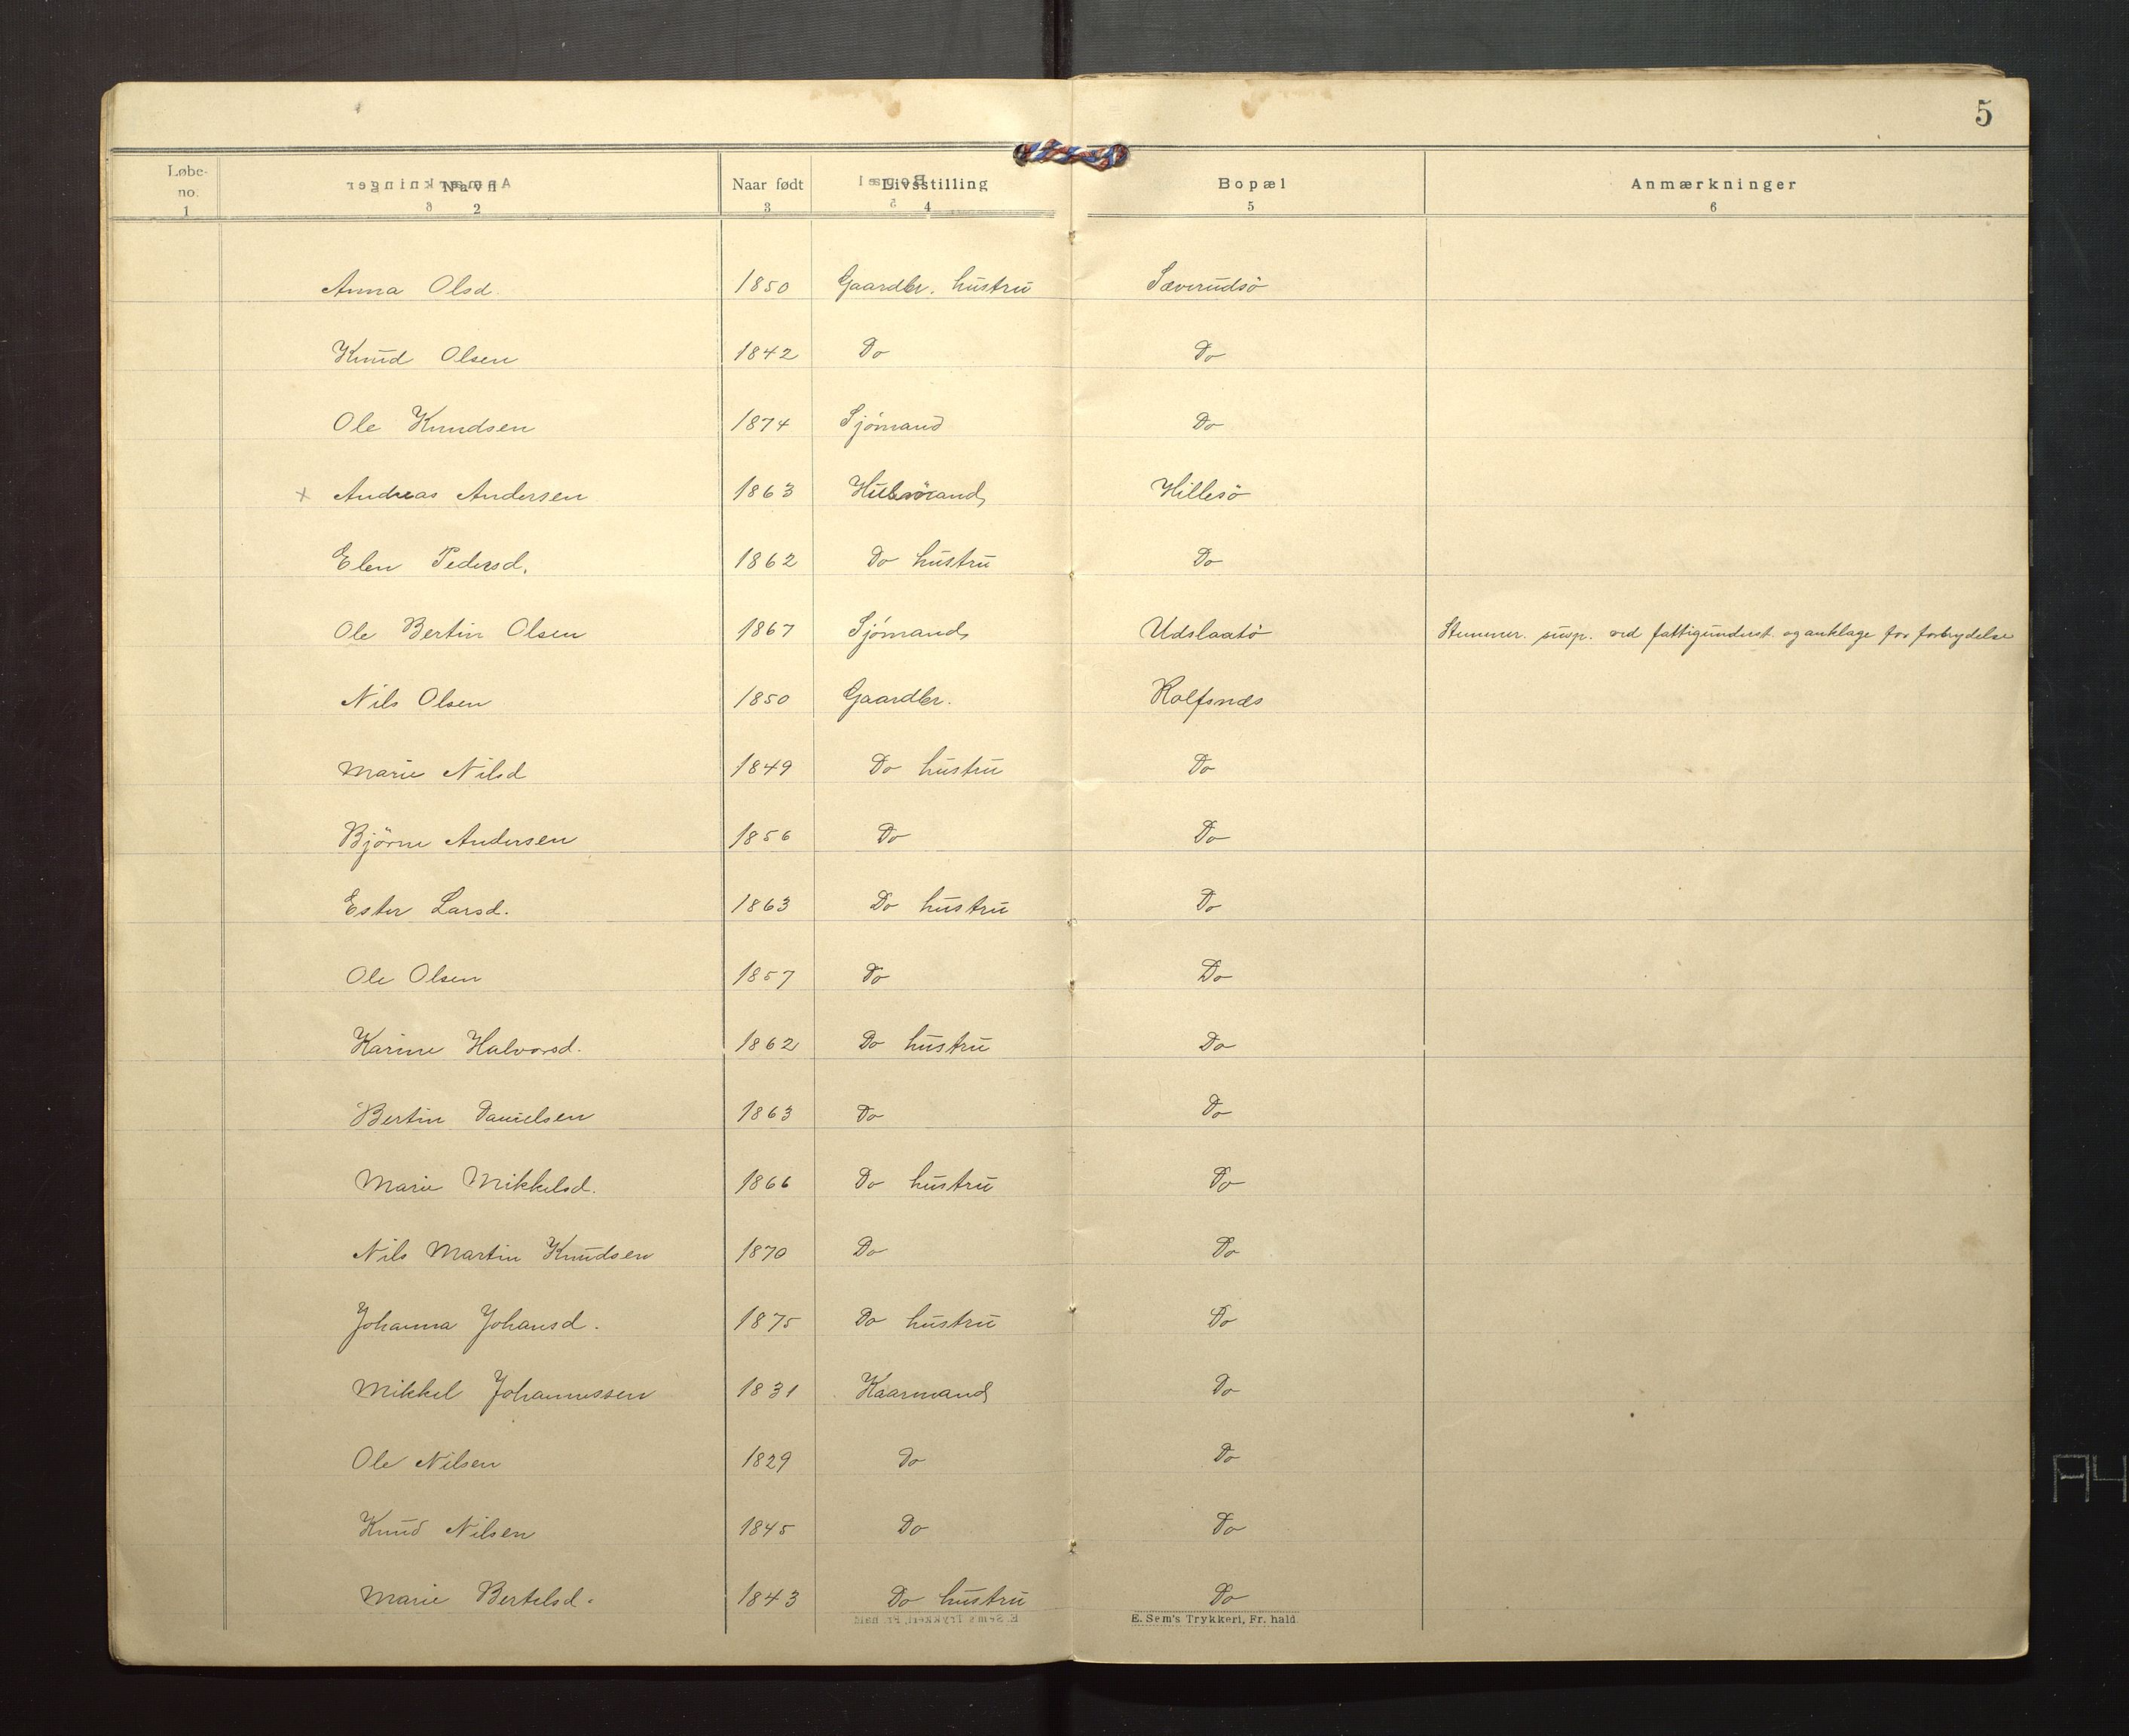 5
Løbe-no. Navn Naar født Livsstilling Bopæl Anmærkninger
1 2 3 4 5 6
Anna Olsd. 1850 Gaardbr. hustru Sæverudsö
Knud Olsen 1842 Do Do
Ole Knudsen 1874 Sjömand Do
x Andreas Andersen 1863 Hillesö
Elen Pedersd. 1862 Do hustru Do
Ole Bertin Olsen 1867 Sjömand Udslaatö Stemmer. susp. ved fattigunderst. og anklage for forbrydelse
Nils Olsen 1850 Gaardbr. Rolfsnæs
Marie Nilsd 1849 Do hustru Do
Björne Andersen 1856 Do Do
Ester Larsd. 1863 Do hustru Do
Ole Olsen 1857 Do Do
Karine Halvorsd. 1862 Do hustru Do
Bertin Danielsen 1863 Do Do
Marie Mikkelsd. 1866 Do hustru Do
Nils Martin Knudsen 1870 Do Do
Johanna Johansd. 1875 Do hustru Do
Mikkel Johannessen 1831 Kaarmand Do
Ole Nilsen 1829 Do Do
Knud Nilsen 1845 Do Do
Marie Bertelsd. 1843 Do hustru Do
E. Sem's Trykkeri, Fr. hald